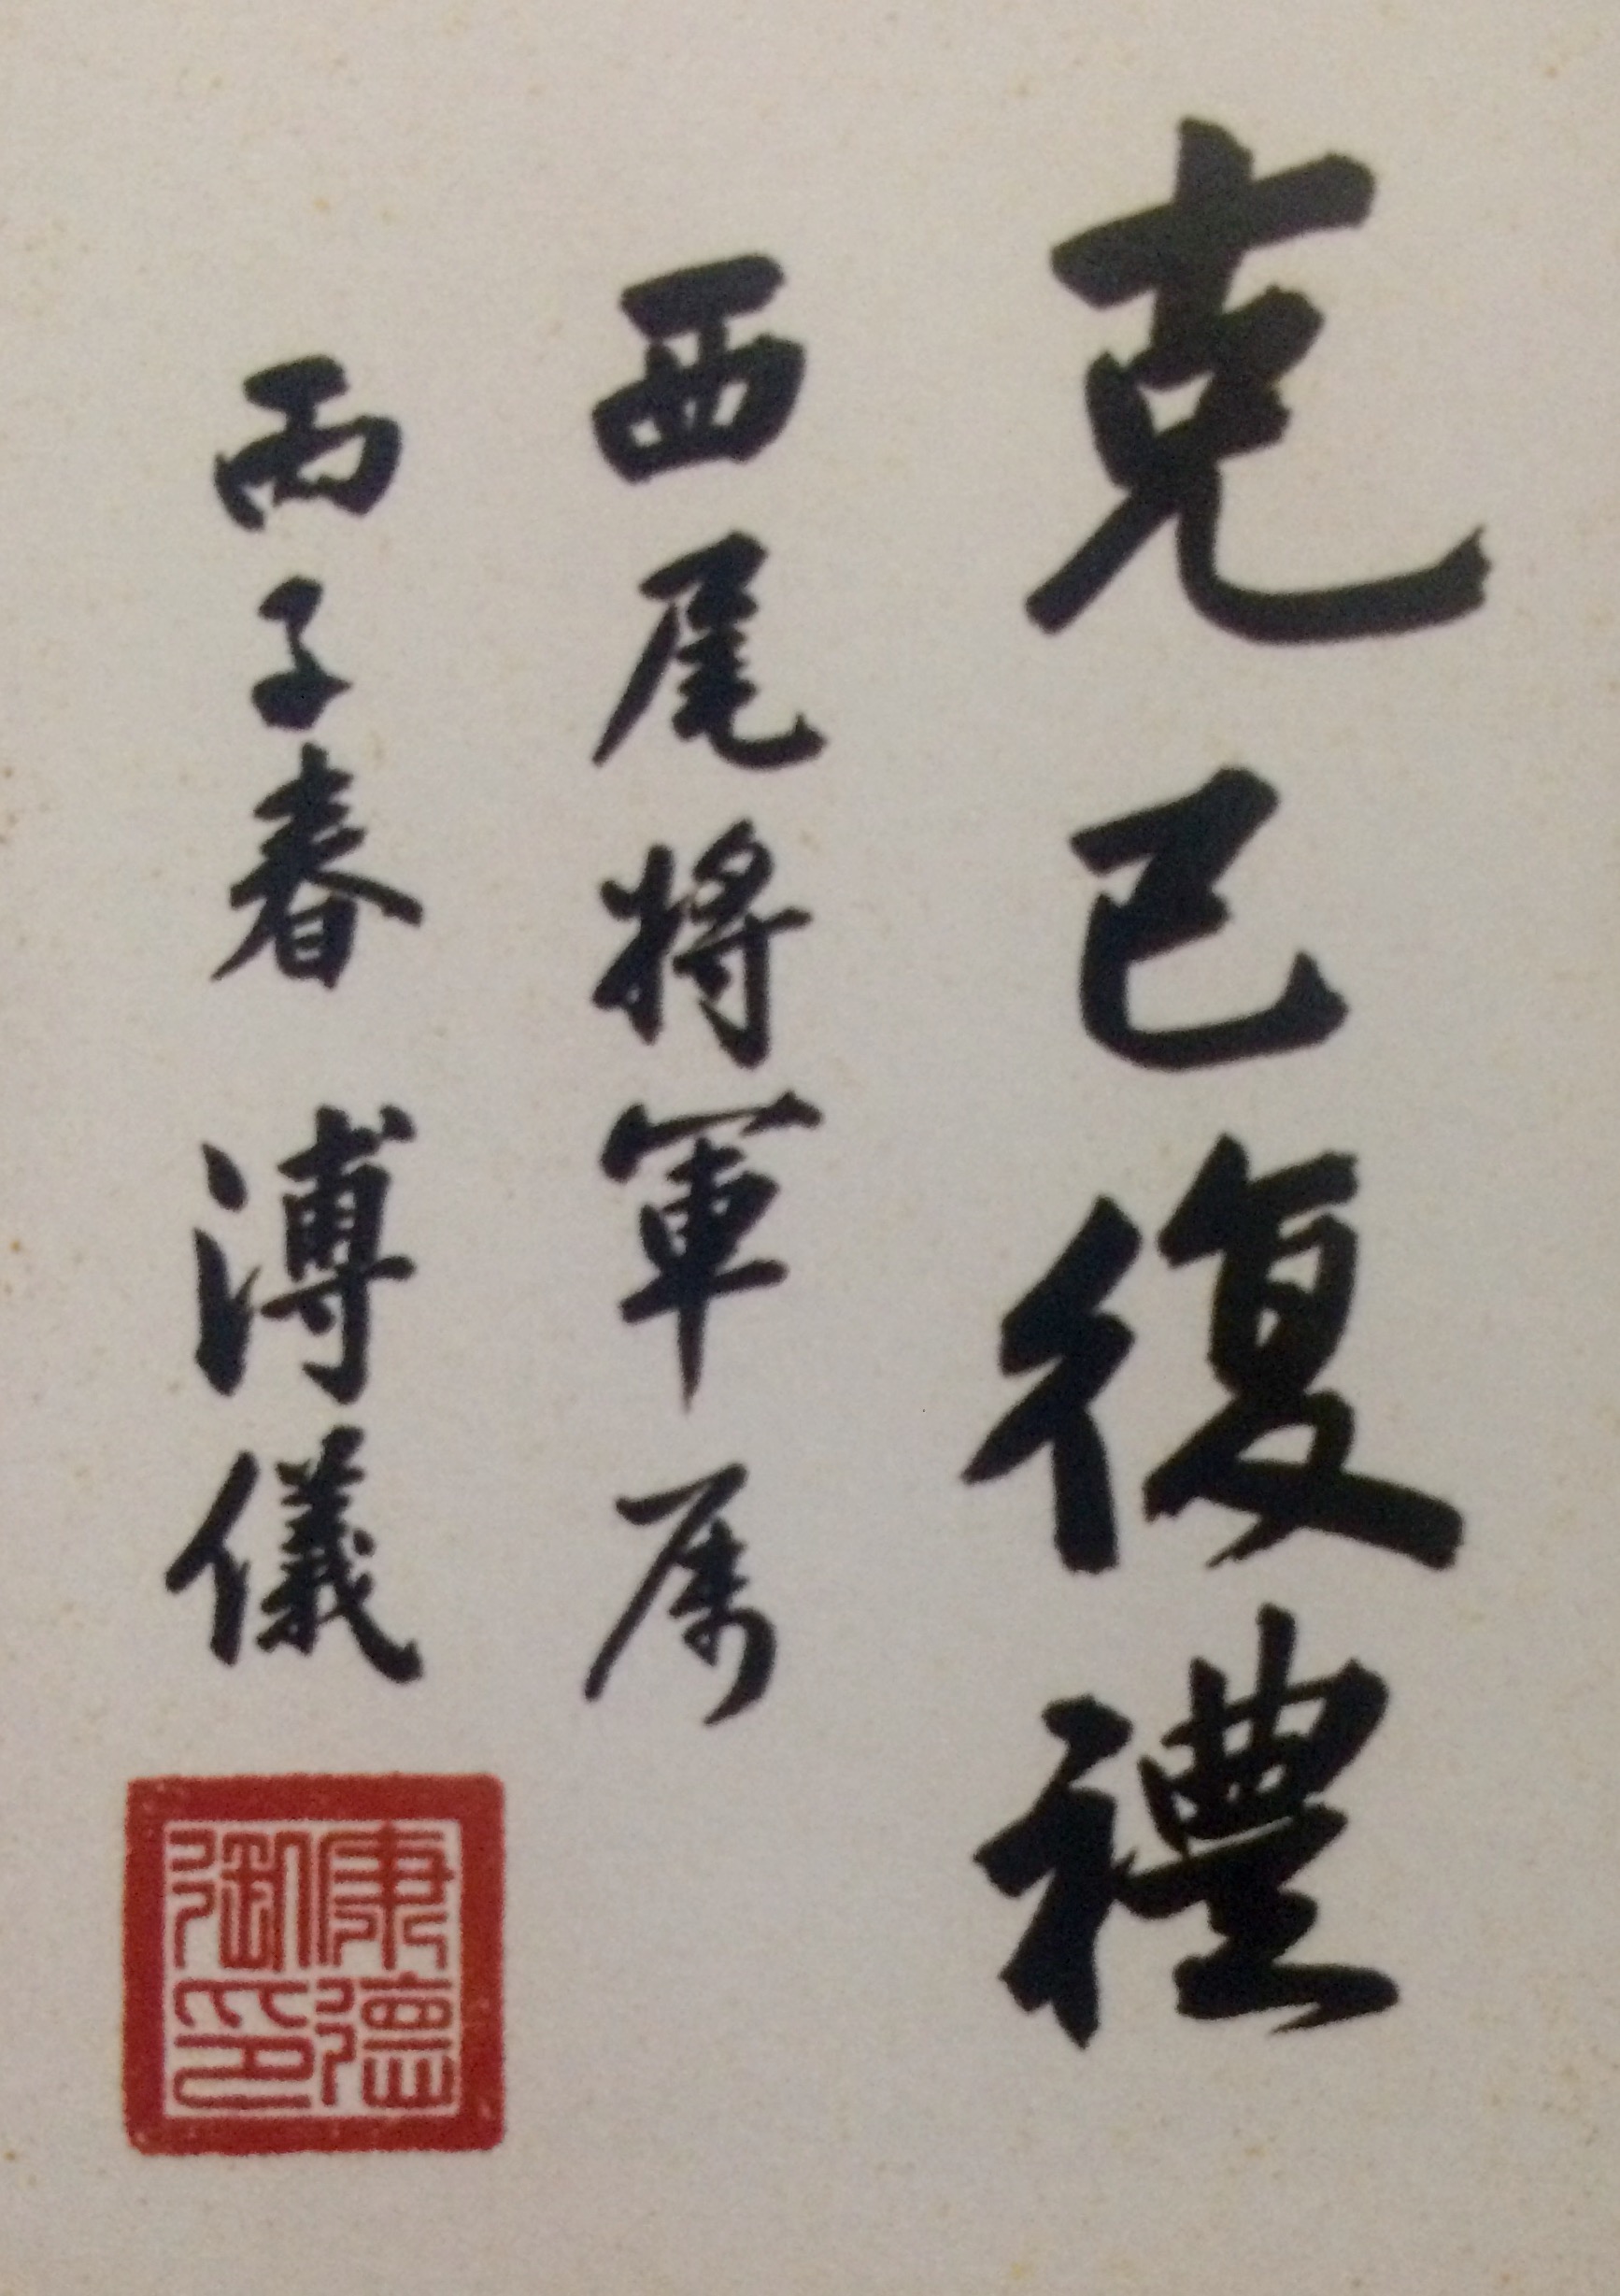 克己復禮
西尾將軍属
丙子春 溥儀
康德御印